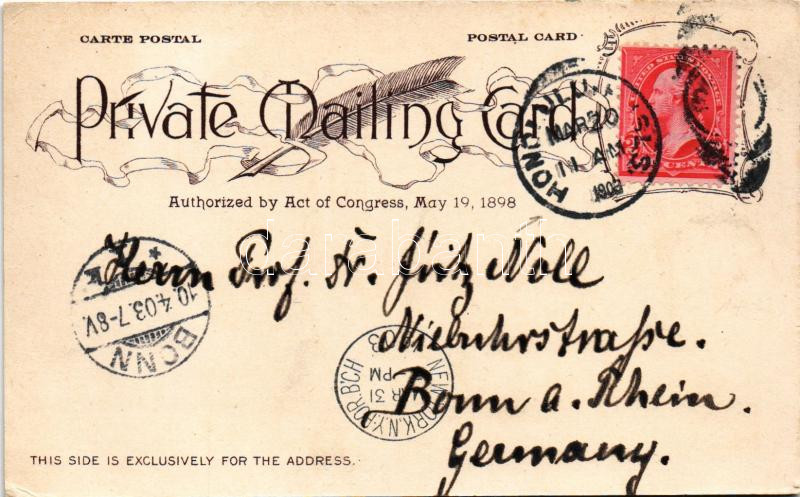 CARTE POSTAL
POSTAL CARD
Private Mailing Card
Authorized by Act of Congress, May 19, 1898
HONOLULU
MAR 20
11 AM
1903
Herrn Prof. Dr. Fritz Noll
Niebuhrstraße.
Bonn a. Rhein.
Germany.
BONN
10.4.03.7-8V.
NEW YORK, N.Y.
MAR 31
PM
THIS SIDE IS EXCLUSIVELY FOR THE ADDRESS.
darabanth